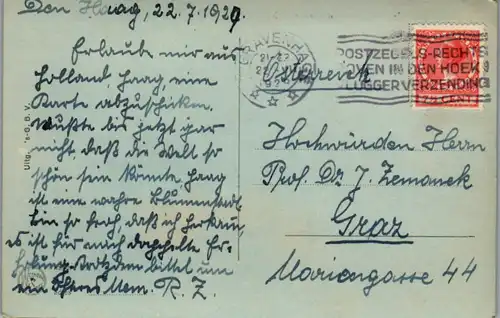 Den Haag, 22.7.1929.
Erlaube mir aus
Holland, Haag, eine
Karte abzuschicken.
Wußte bis jetzt gar
nicht, daß die Welt so
schön sein könnte. Haag
ist eine wahre Blumenstadt.
Bin so froh, daß ich herkam,
es ist für mich doppelte Er-
holung. Trotzdem bittet um
ein Mem. R. Z.
Uitg.
'S-GRAVENHAGE
POSTZEGELS RECHTS
BOVEN IN DEN HOEK
VLUGGER VERZENDING
Österreich
Hochwürden Herrn
Prof. Dr J. Zemanek
Graz
Mariengasse 44